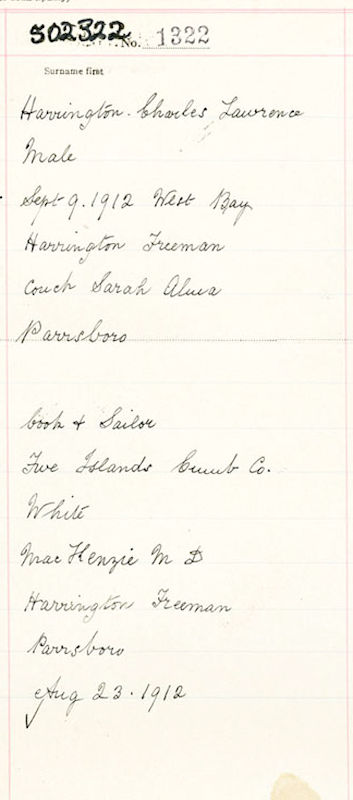 502322
No. 1322
Surname first
Harrington. Charles Lawrence
Male
Sept 9. 1912 West Bay
Harrington Freeman
Couch Sarah Alma
Parrsboro
Cook & Sailor
Five Islands Cumb Co.
White
MacKenzie M D
Harrington Freeman
Parrsboro
Aug 23. 1912